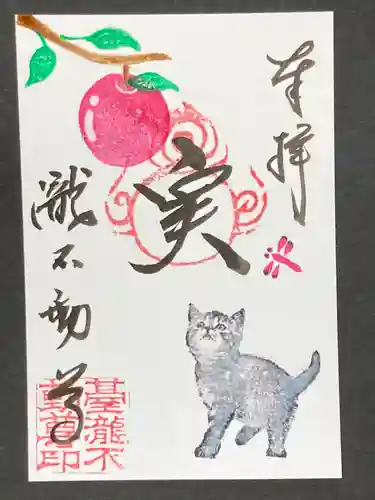 奉拝
実
瀧不動尊
基瀧不
動尊印